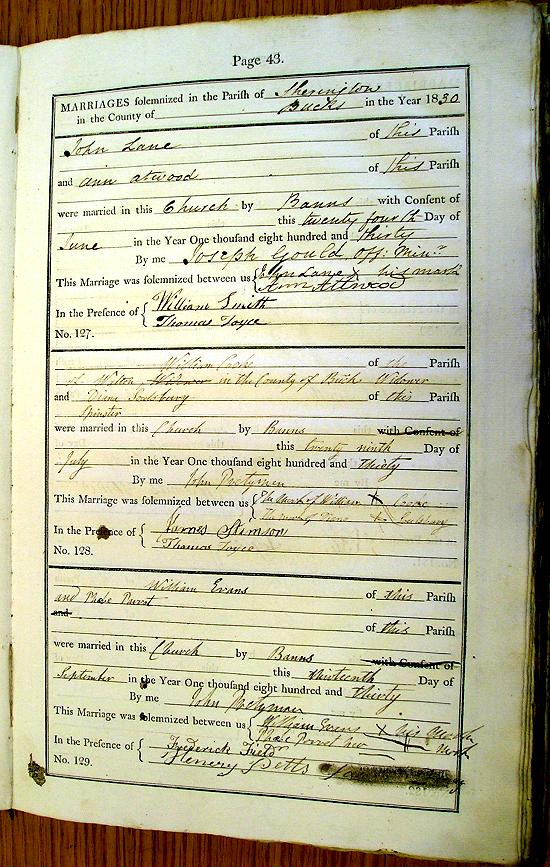 Page 43.
MARRIAGES solemnized in the Parish of Sherington
in the County of Bucks in the Year 1830
John Lane of this Parish
and ann atwood of this Parish
were married in this Church by Banns with Consent of
this twenty fourth Day of
June in the Year One thousand eight hundred and thirty
By me Joseph Gould off: Minr.
This Marriage was solemnized between us John Lane X his mark
Ann Attwood
In the Presence of William Smith
Thomas Joyce
No. 127.
William Cooke of the Parish
of Wilton Widower in the County of Buck Widower
and Diana Soulsbury of this Parish
Spinster
were married in this Church by Banns with Consent of
this twenty ninth Day of
July in the Year One thousand eight hundred and thirty
By me John Pretyman
This Marriage was solemnized between us The Mark of William X Cooke
The mark of X
In the Presence of James Stimson
Thomas Joyce
No. 128.
William Evans of this Parish
and Phebe Parrot
and of this Parish
were married in this Church by Banns with Consent of
this thirteenth Day of
September in the Year One thousand eight hundred and thirty
By me John Pretyman
This Marriage was solemnized between us William Evans X his Mark
Phebe Parrot her X Mark
In the Presence of Frederick Field
Henery Petts
No. 129.